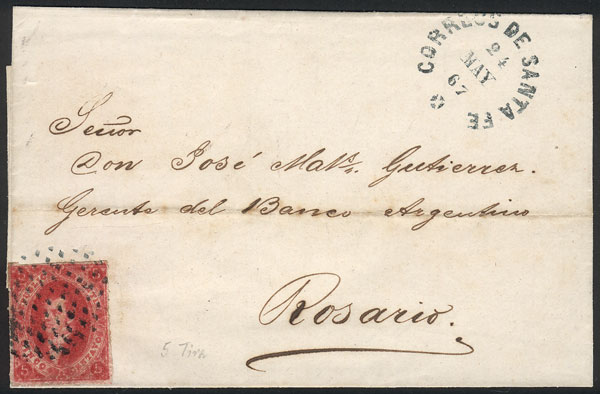 CORREOS DE SANTA FE
24
MAY
67
Señor
Don José Mats. Gutierrez.
Gerente del Banco Argentino
Rosario.
5
5
5 Tira